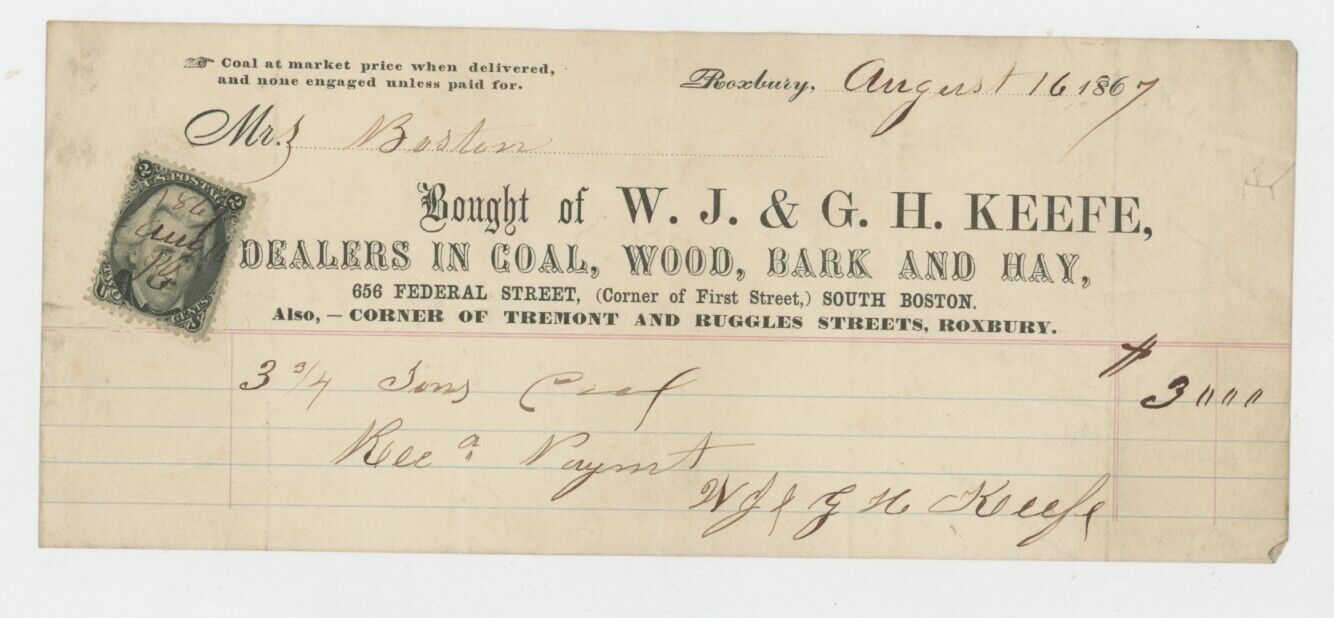 Coal at market price when delivered,
and none engaged unless paid for.
Roxbury, August 16 1867
Mrs Boston
U.S. POSTAGE
2 2
1867
Aug
16
TWO CENTS
Bought of W. J. & G. H. KEEFE,
DEALERS IN COAL, WOOD, BARK AND HAY,
656 FEDERAL STREET, (Corner of First Street,) SOUTH BOSTON.
Also, — CORNER OF TREMONT AND RUGGLES STREETS, ROXBURY.
3 3/4 Tons Coal $ 3 """
Rec d Paymt
W J & G H Keefe